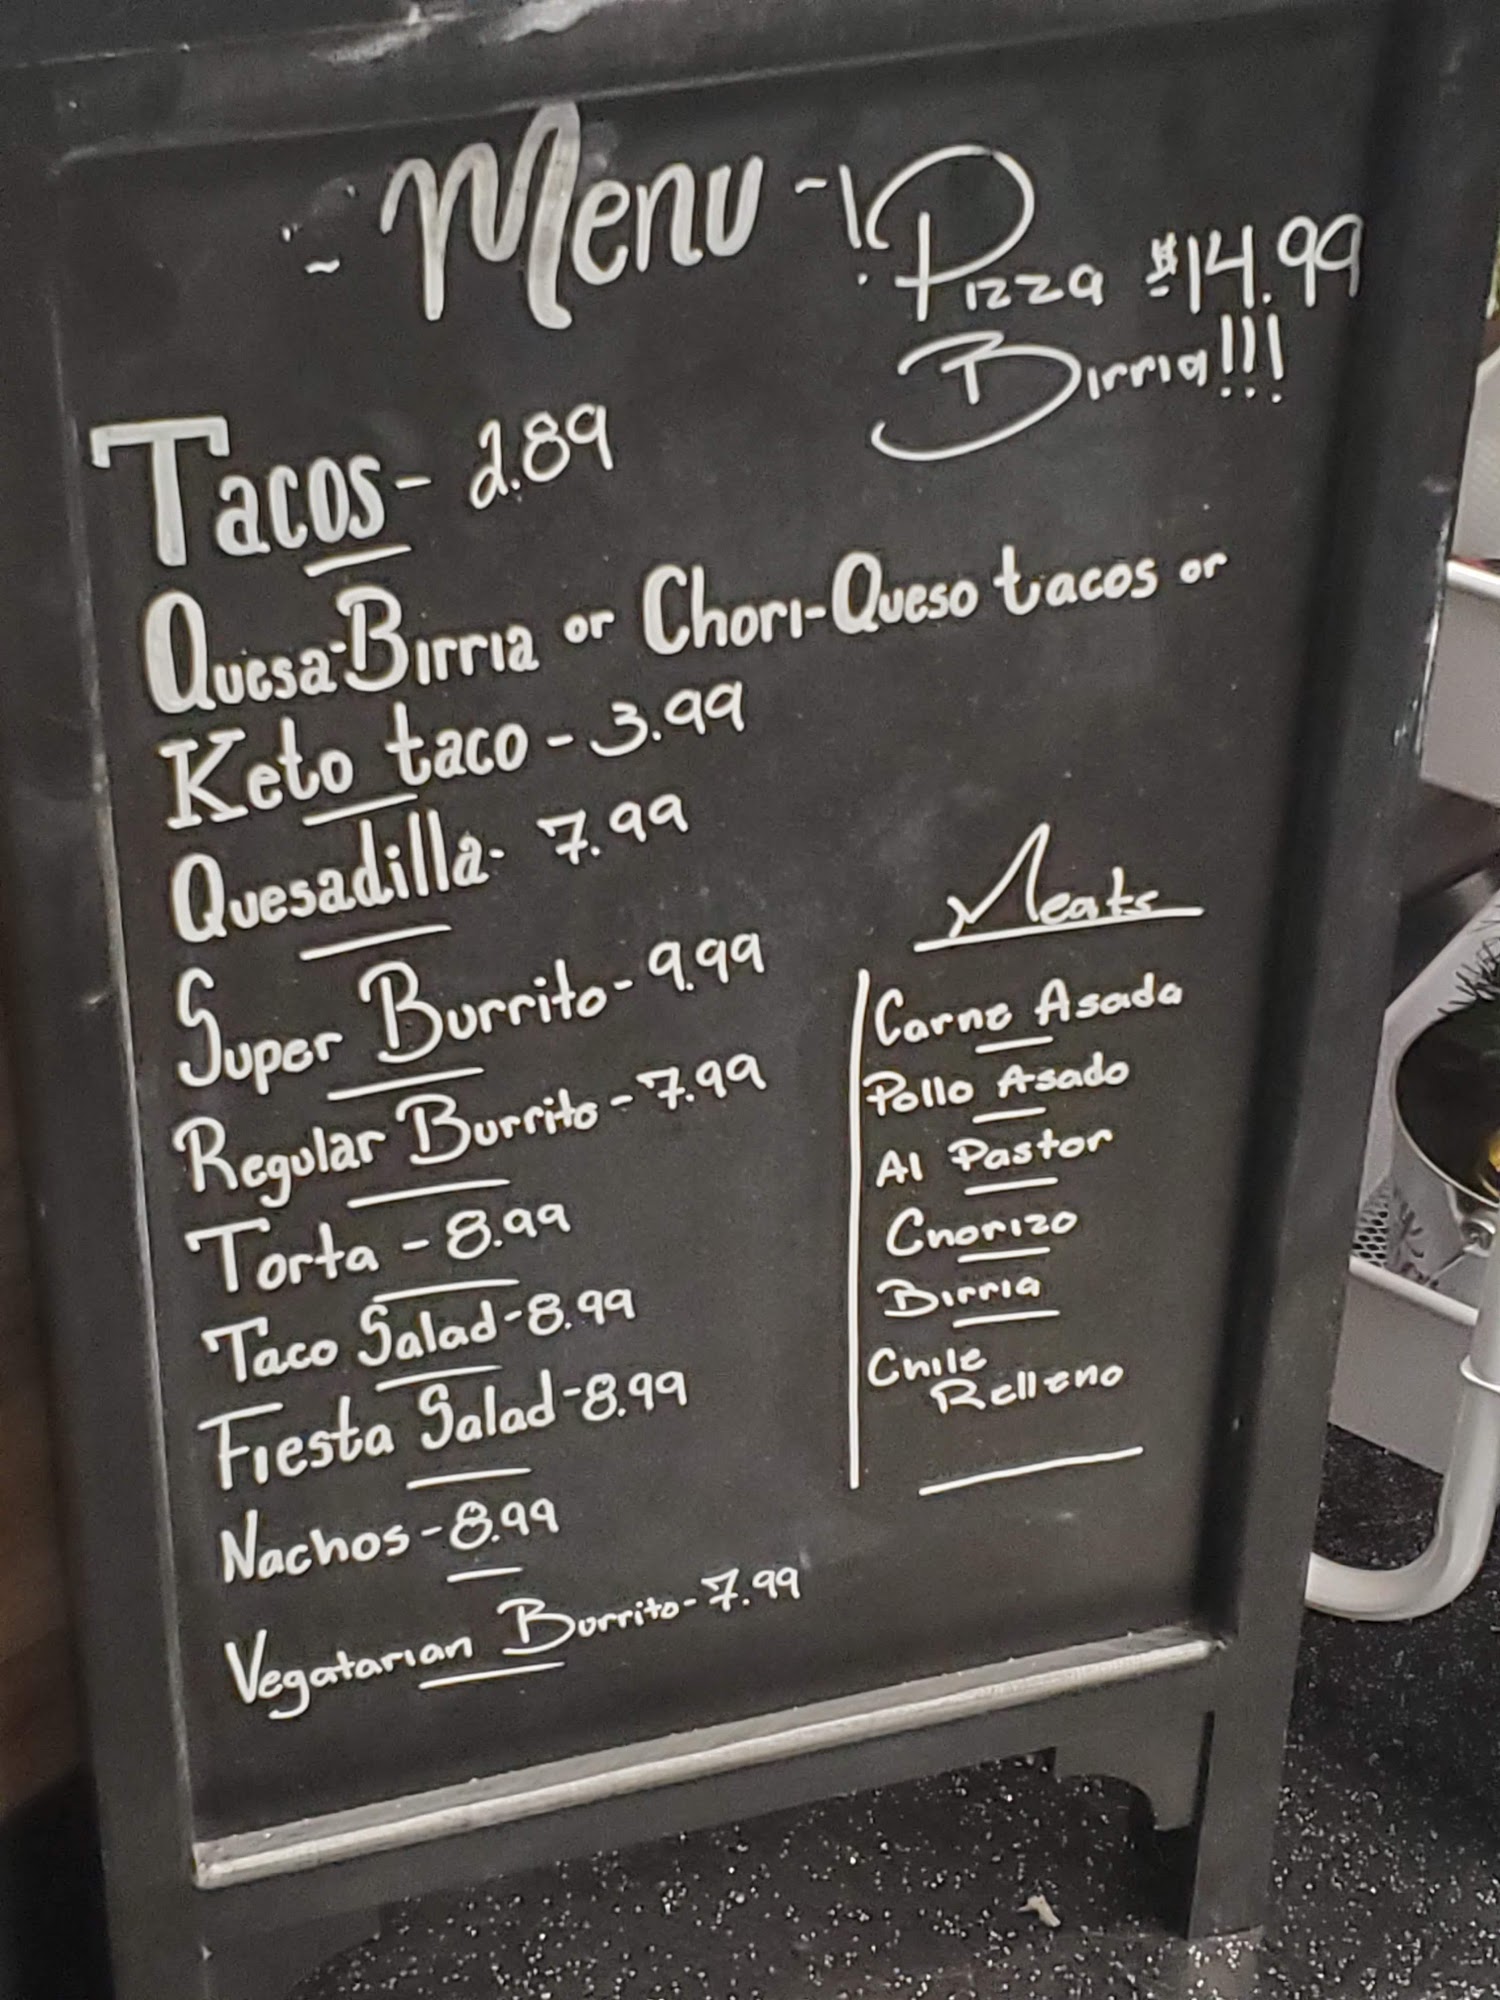 ~ Menu ~
! Pizza $14.99
Birria!!!
Tacos - 2.89
Quesa-Birria or Chori-Queso tacos or
Keto taco - 3.99
Quesadilla - 7.99
Super Burrito - 9.99
Regular Burrito - 7.99
Torta - 8.99
Taco Salad - 8.99
Fiesta Salad - 8.99
Nachos - 8.99
Vegatarian Burrito - 7.99
Meats
Carne Asada
Pollo Asado
Al Pastor
Chorizo
Birria
Chile
Relleno